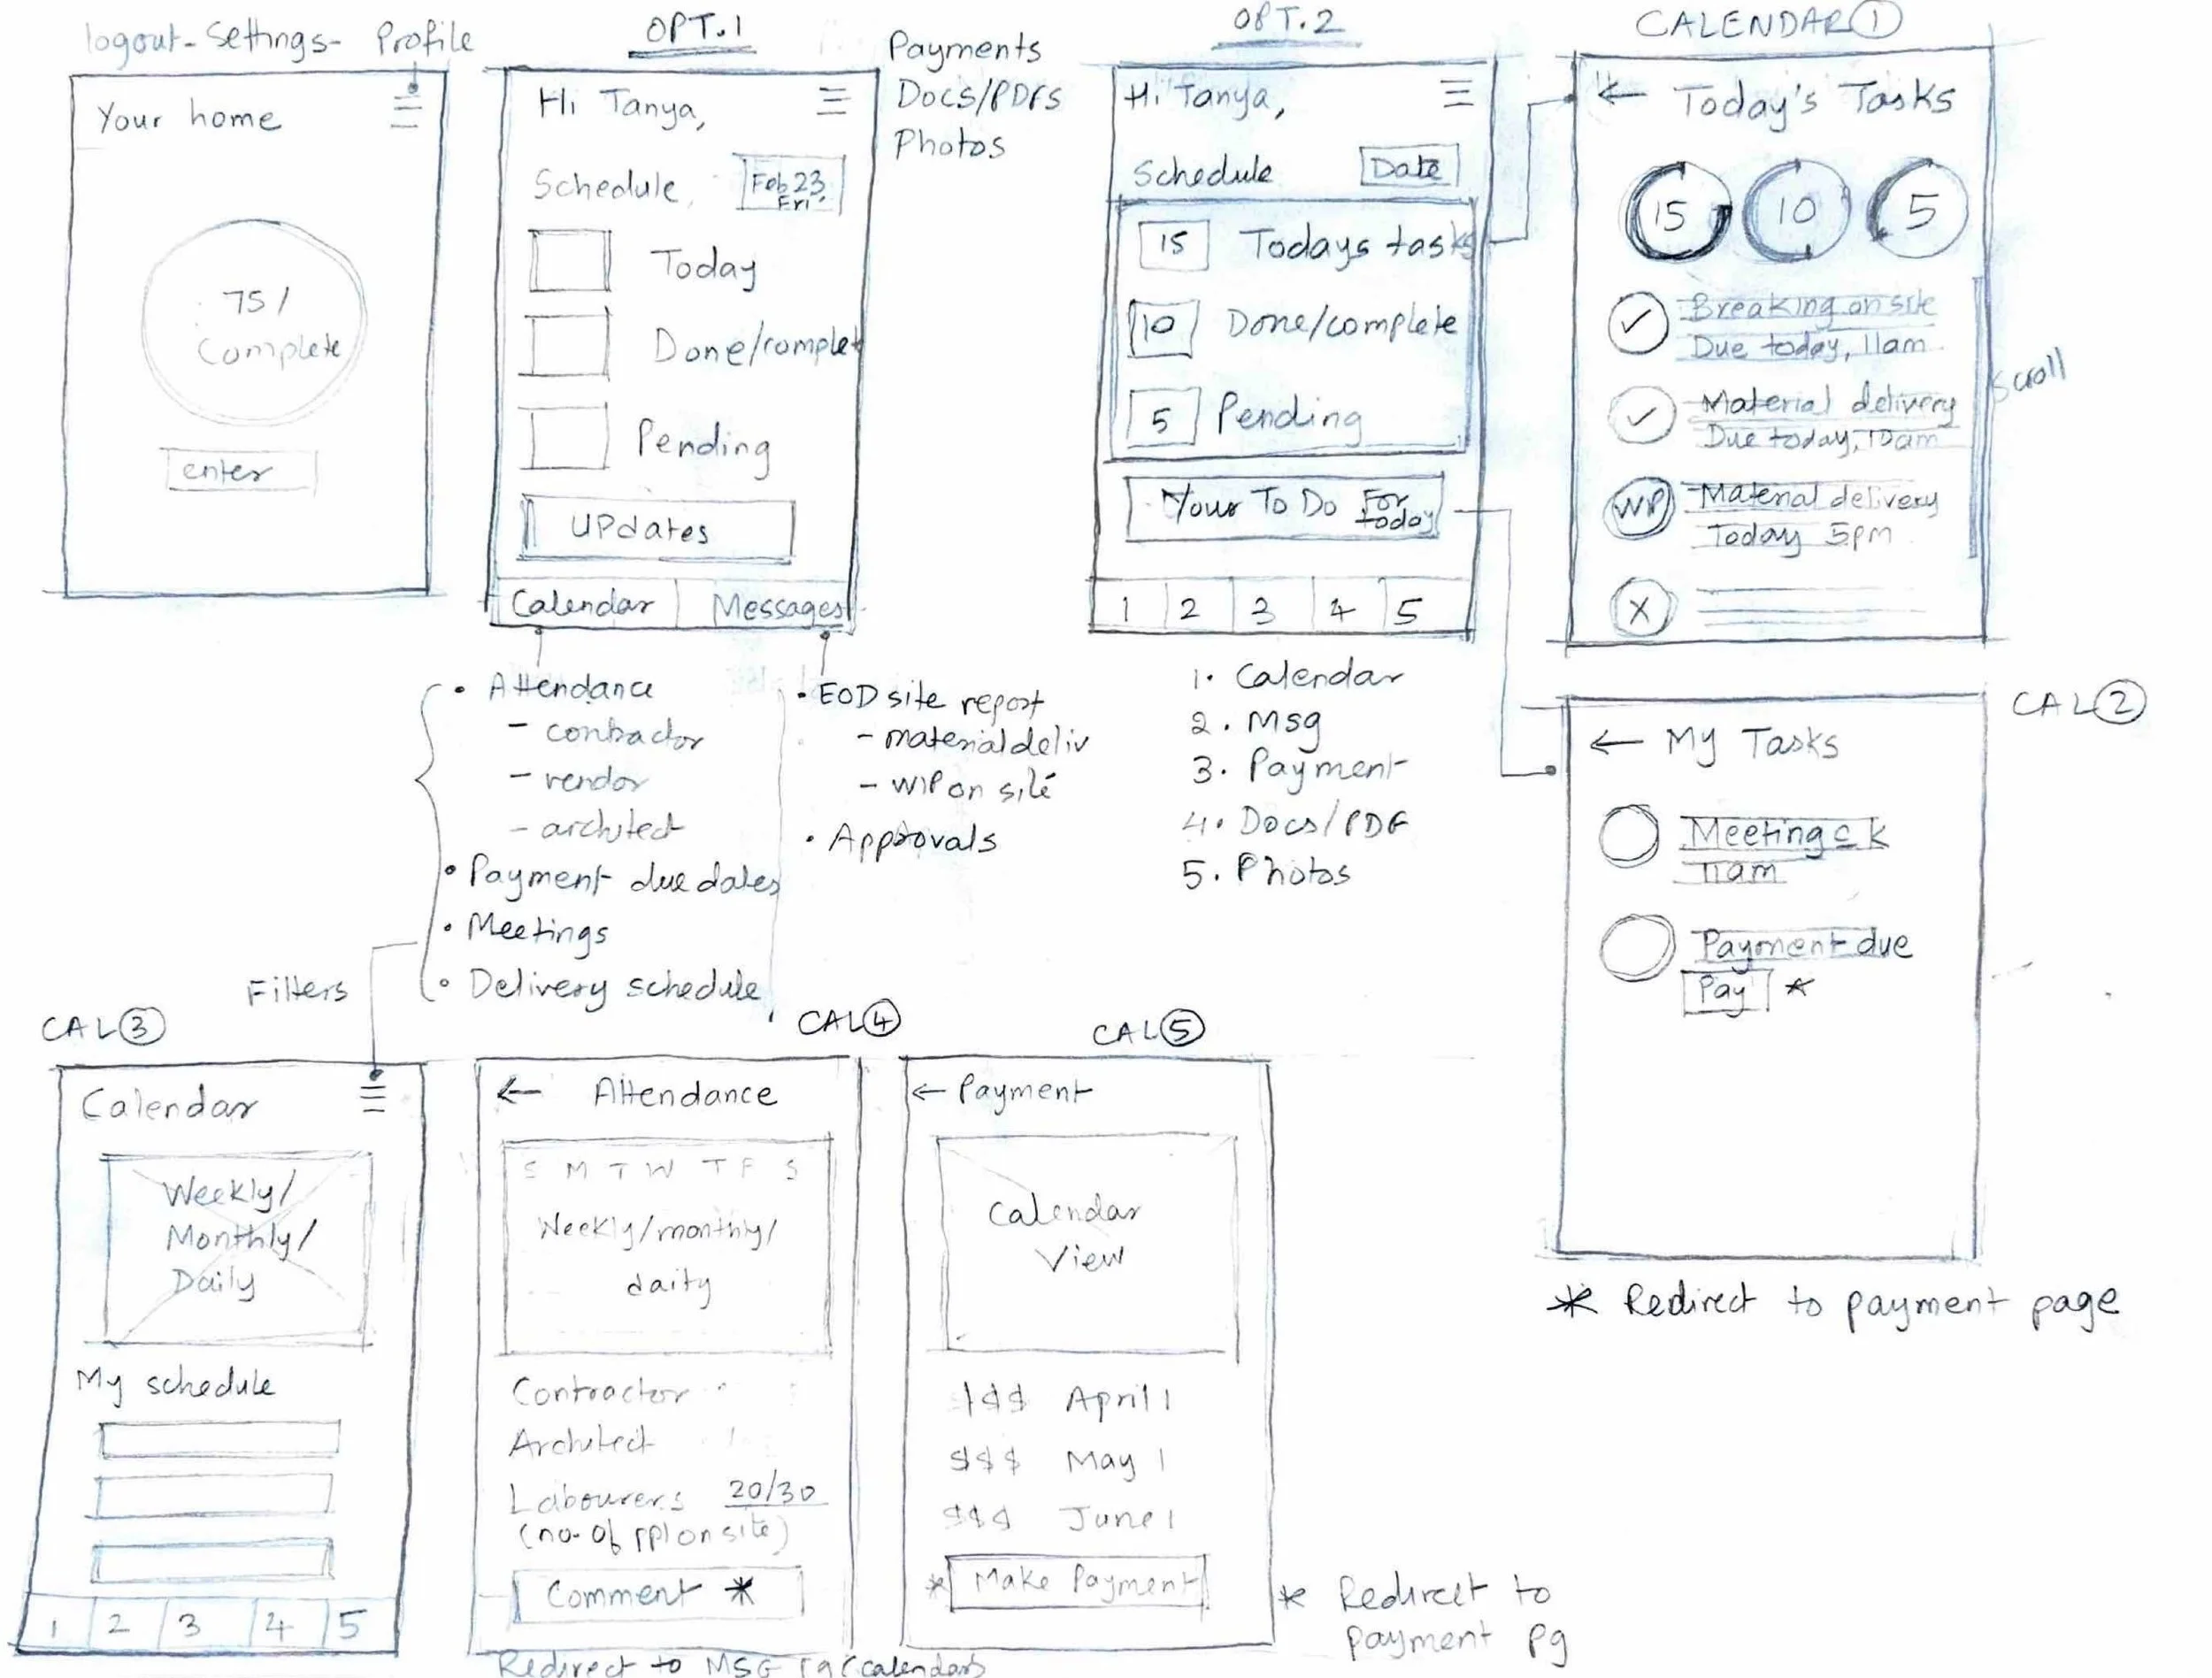 logout - Settings - Profile
Your home
75 /
Complete
enter
OPT.1
Hi Tanya,
Schedule
Feb 23,
Fri
Today
Done/complet
Pending
UPdates
Calendar
Messages
Payments
Docs/PDFs
Photos
• Attendance
- contractor
- vendor
- architect
• Payment due dates
• Meetings
• Delivery schedule
Filters
• EOD site report
- material deliv
- WIP on site
• Approvals
OPT.2
Hi Tanya,
Schedule
Date
15 Todays tasks
10 Done/complete
5 Pending
Your To Do For
today
1 2 3 4 5
1. Calendar
2. Msg
3. Payment
4. Docs/PDF
5. Photos
CALENDAR 1
← Today's Tasks
15 10 5
Breaking on site
Due today, 11am
Material delivery
Due today, 10am
WP Material delivery
Today 5pm
X
Scroll
CAL 2
← My Tasks
Meeting c k
11am
Payment due
Pay *
* Redirect to payment page
CAL 3
Calendar
Weekly/
Monthly/
Daily
My schedule
1 2 3 4 5
CAL 4
← Attendance
S M T W T F S
Weekly/monthly/
daily
Contractor
Architect
Labourers 20/30
(no. of ppl on site)
Comment *
Redirect to MSG (calendar)
CAL 5
← Payment
Calendar
View
$$$ April 1
$$$ May 1
$$$ June 1
* Make Payment
* Redirect to
payment pg